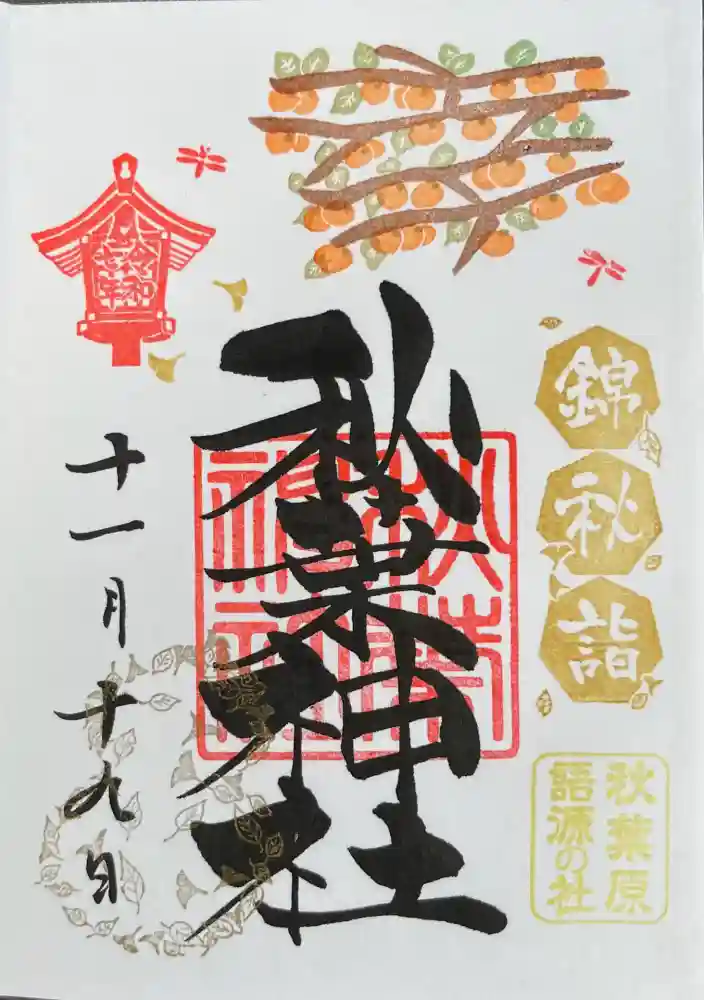 錦秋詣
秋葉原
語源の社
秋葉神社
秋葉
神社
令和
十一月十九日